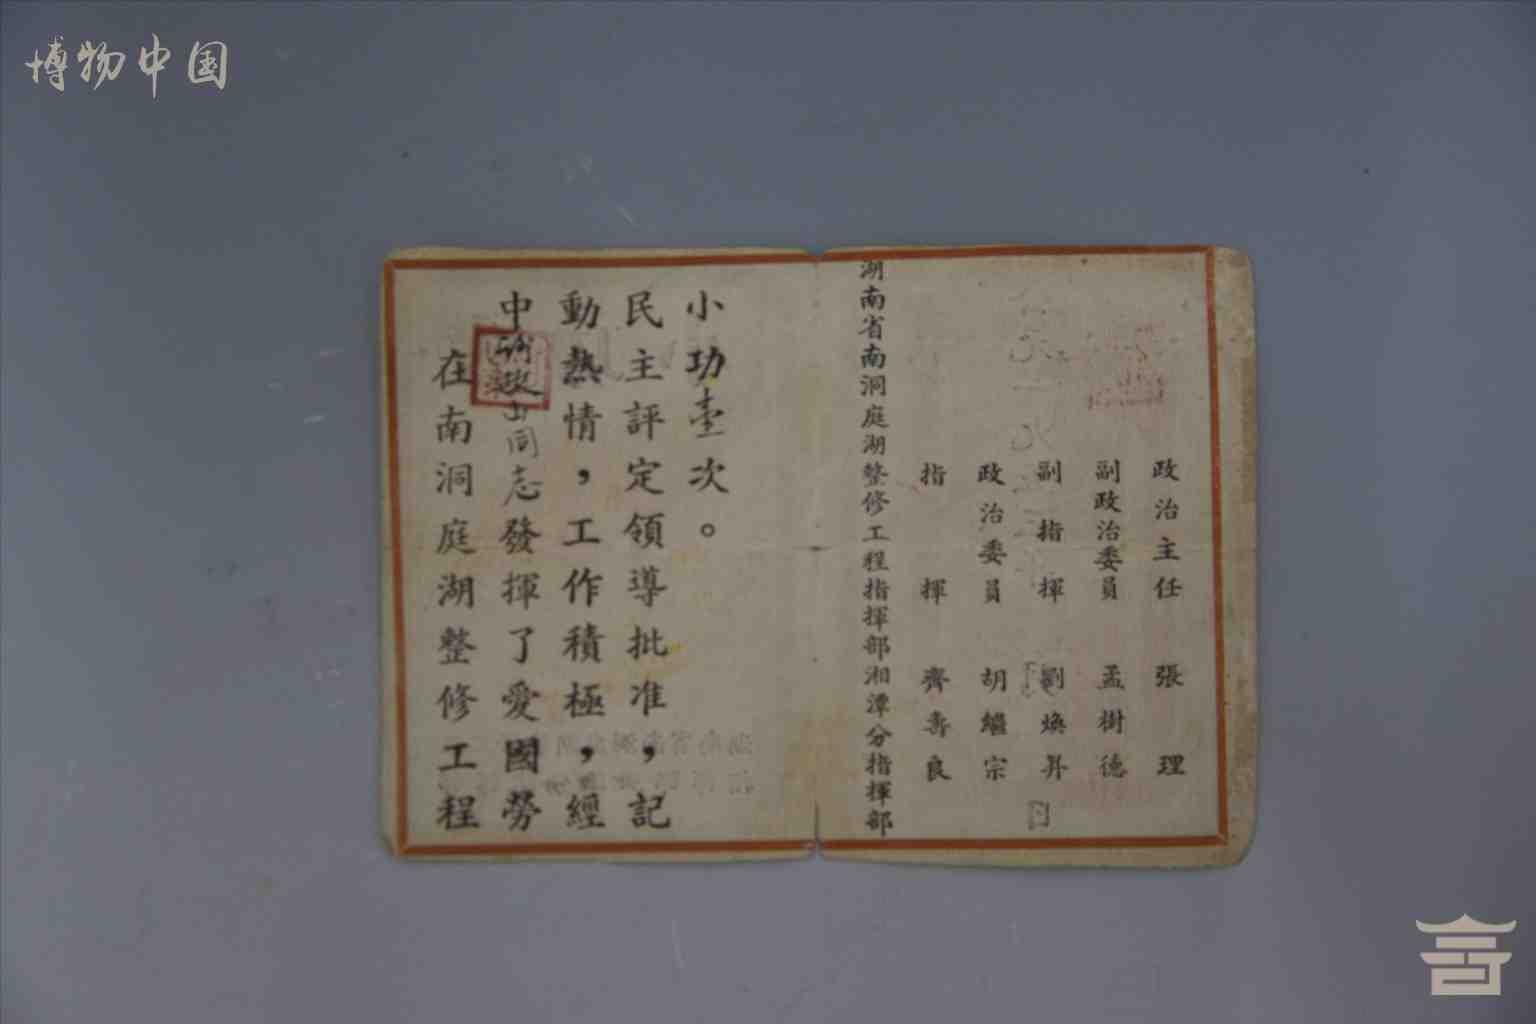 博物中国
在南洞庭湖整修工程
中政同志發揮了愛國勞
動熱情，工作積極，經
民主評定領導批准，記
小功壹次。
湖南省南洞庭湖整修工程指揮部湘潭分指揮部
指揮 齊壽良
政治委員 胡繼宗
副指揮 劉煥昇
副政治委員 孟樹德
政治主任 張理